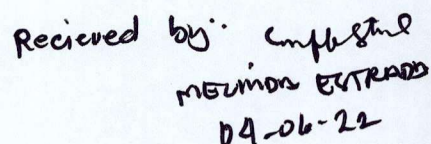 Recieved by:
MELINDA ESTRADA
04-06-22